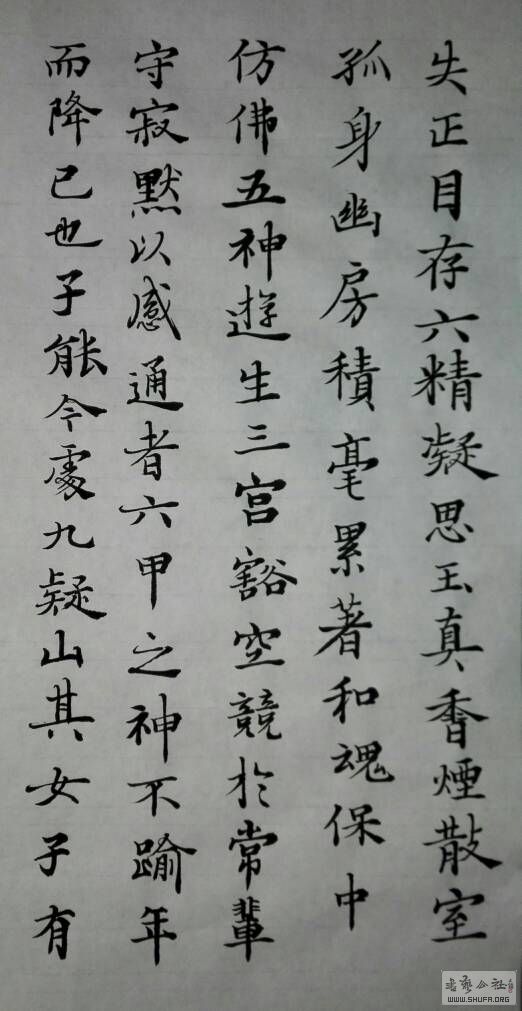 失正目存六精凝思玉真香煙散室
孤身幽房積毫累著和魂保中
仿佛五神遊生三宫豁空競於常輩
守寂默以感通者六甲之神不踰年
而降已也子能今處九疑山其女子有
書藝公社
WWW.SHUFA.ORG